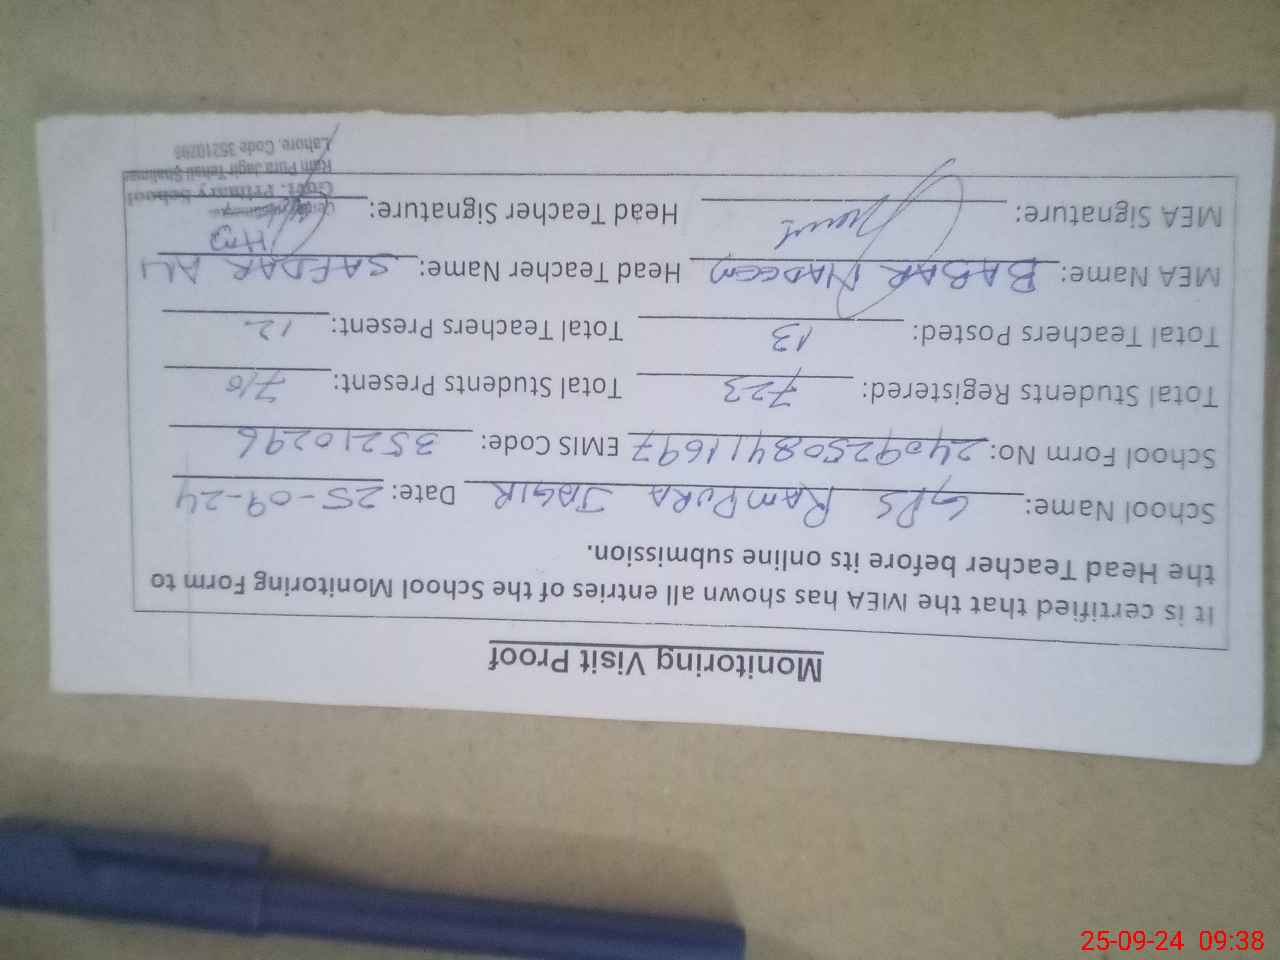 Monitoring Visit Proof
It is certified that the MEA has shown all entries of the School Monitoring Form to
the Head Teacher before its online submission.
School Name: GPS RAMPURA JAGIR Date: 25-09-24
School Form No: 24092508411697 EMIS Code: 35210296
Total Students Registered: 723 Total Students Present: 710
Total Teachers Posted: 13 Total Teachers Present: 12
MEA Name: BABAR NADEEM Head Teacher Name: SAFDAR ALI
MEA Signature: Head Teacher Signature:
Govt. Primary School
Ram Pura Jagir Tehsil Shalimar
Lahore. Code 35210296
25-09-24 09:38